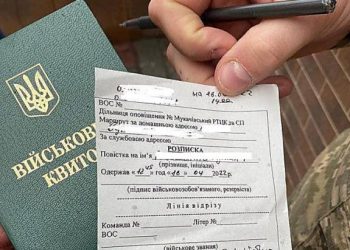 ВІЙСЬКОВ
КВИТО
О.
на 16.0
ВОС №
14.00
Дільниця оповіщення № Мукачівський РТЦК та СП
Маршрут за домашньою адресою
За службовою адресою
РОЗПИСКА
Повістка на ім'я
(прізвище, ініціали)
Одержав «12 » год «16 » 04 2022 г.
(підпис військовозобов'язаного, резервіста)
Лінія відрізу
Команда № Літер №
ВОС
(військове звання